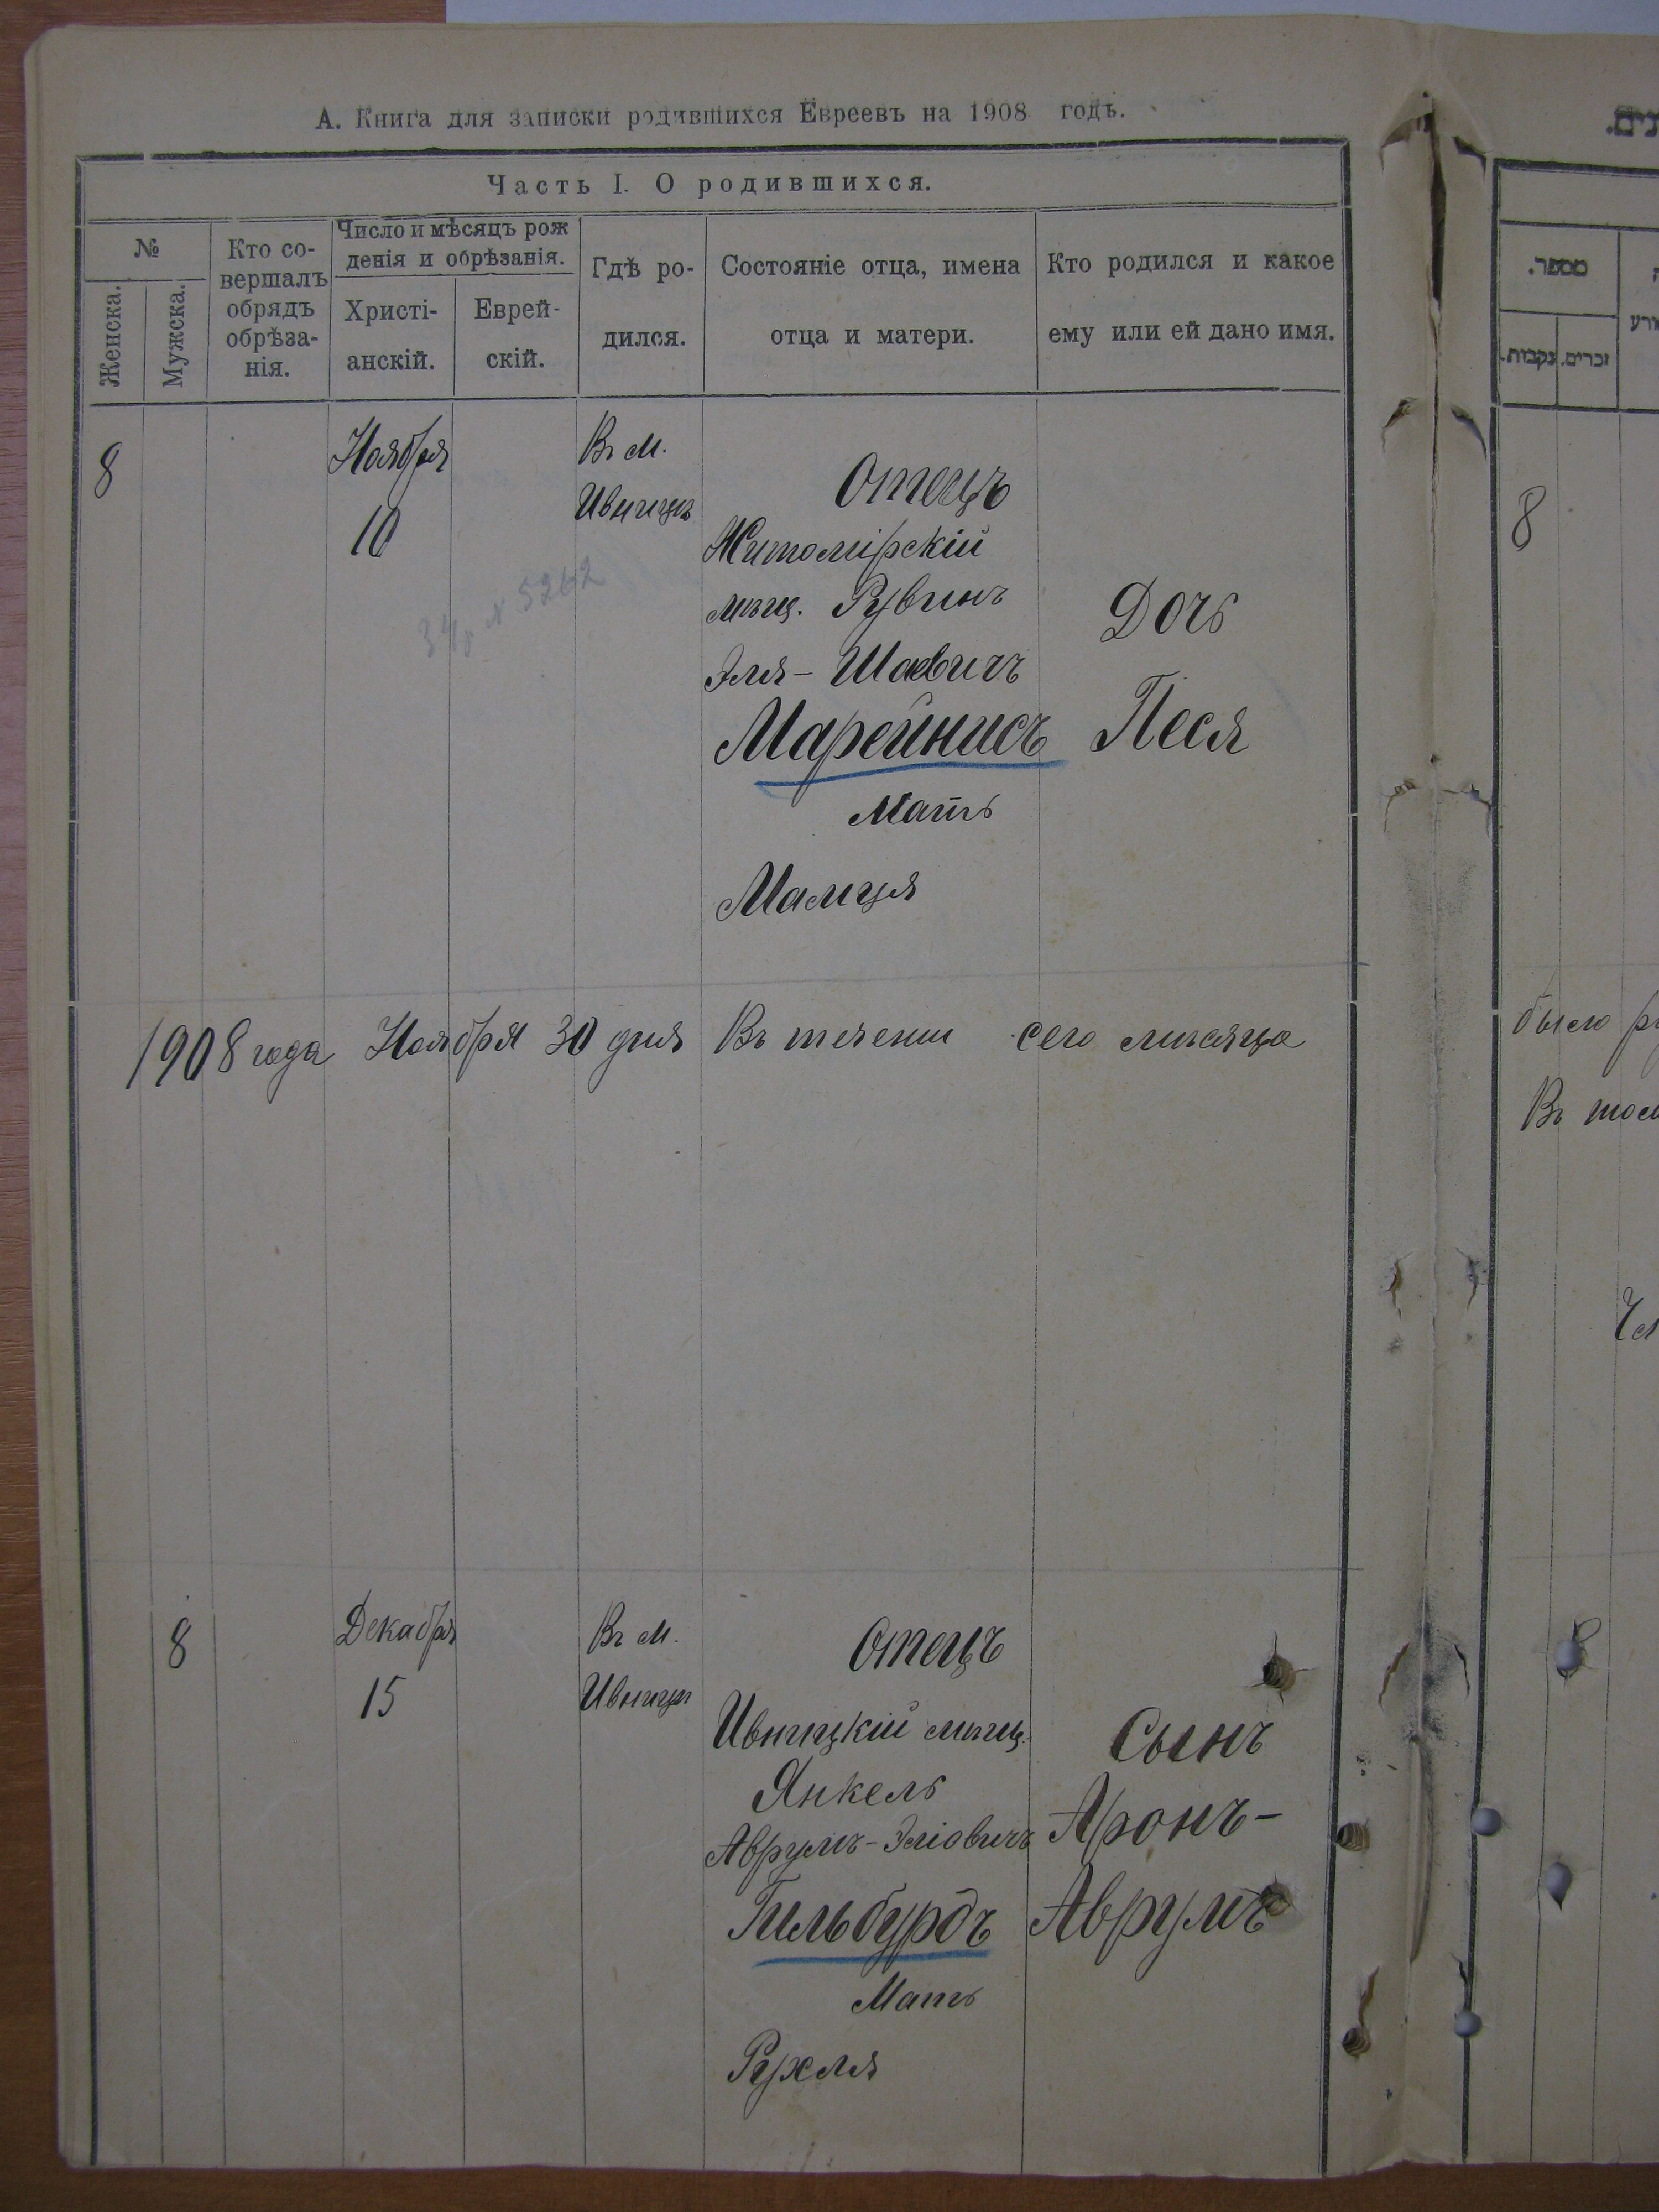 А. Книга для записки родившихся Евреевъ на 1908 годъ.
Часть I. О родившихся.
№
Женска.
Мужска.
Кто со-
вершалъ
обрядъ
обрѣза-
нія.
Число и мѣсяцъ рож
денія и обрѣзанія.
Христі-
анскій.
Еврей-
скій.
Гдѣ ро-
дился.
Состояніе отца, имена
отца и матери.
Кто родился и какое
ему или ей дано имя.
8
Ноября
10
Въ м.
Ивницѣ
Отецъ
Житомірскій
мѣщ. Рувинъ
Эля-Шаевичъ
Марейнисъ
Мать
Малця
Дочь
Песя
1908 года Ноября 30 дня Въ течении сего мѣсяца
8
Декабря
15
Въ м.
Ивницѣ
Отецъ
Ивницкій мѣщ.
Янкель
Аврумъ-Эліовичъ
Гильбурдъ
Мать
Рухля
Сынъ
Аронъ-
Аврумъ
מספר.
זכרים.
נקבות.
8
было
Въ
8